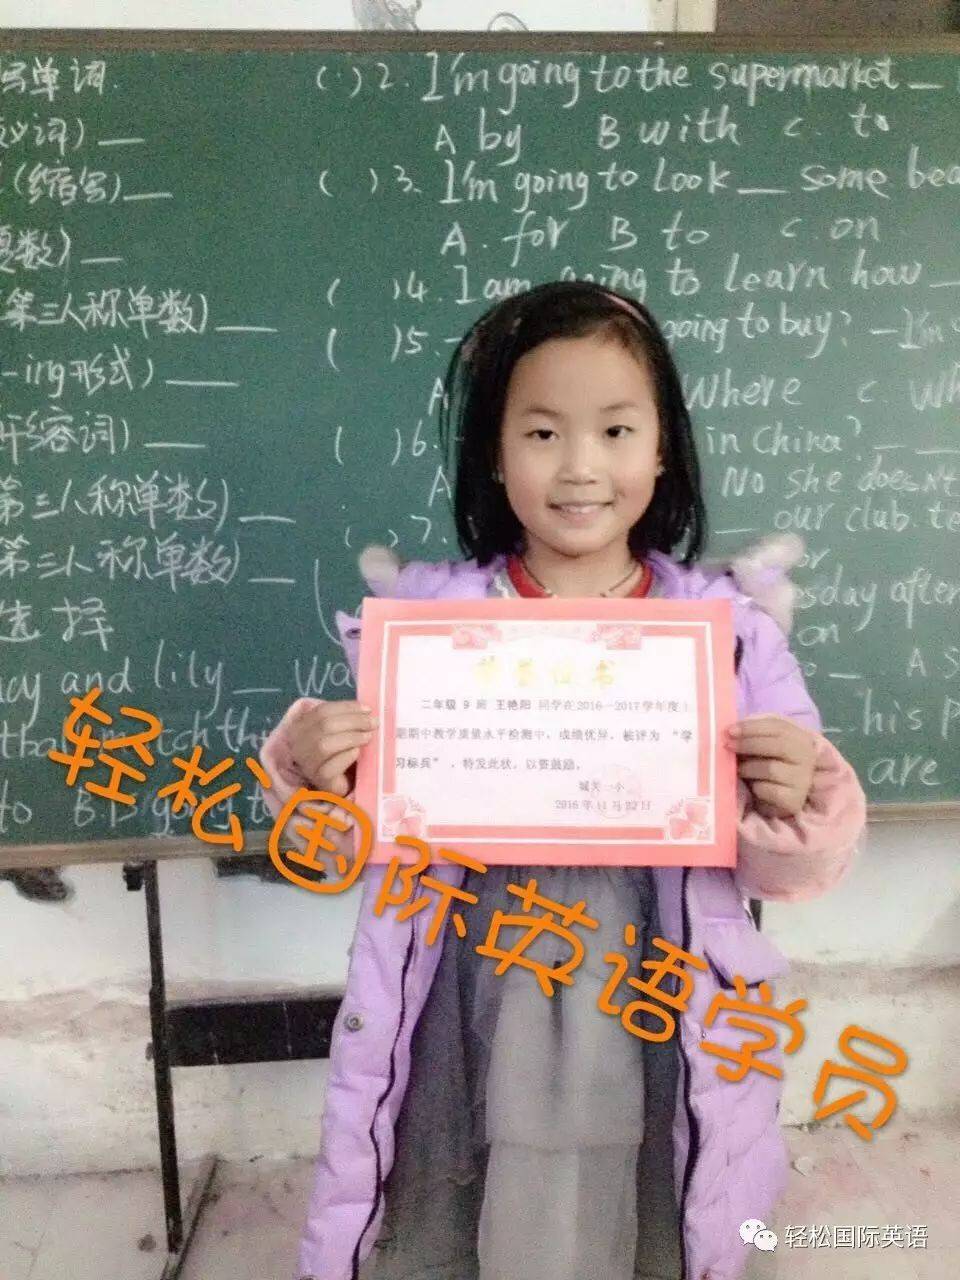 写单词.
义词) __
(缩写) __
数) __
第三人称单数) __
-ing形式) __
形容词) __
第三人称单数) __
第三人称单数) __
选择
and lily __
( ) 2. I'm going to the supermarket __
A by B with C. to
( ) 3. I'm going to look __ some
A. for B to C. on
( ) 4. I am going to learn how __
( ) 5. going to buy? - I'm
Where C.
( ) 6. in China? - __
A No she doesn't
( ) 7. __ our club.
after
on
A
his
are
to B. is going to
荣誉证书
二年级 9 班 王艳阳 同学在2016—2017学年度上
期期中教学质量水平检测中，成绩优异，被评为 “学
习标兵” ，特发此状，以资鼓励。
城关一小
2016年11月22日
轻松国际英语学员
轻松国际英语